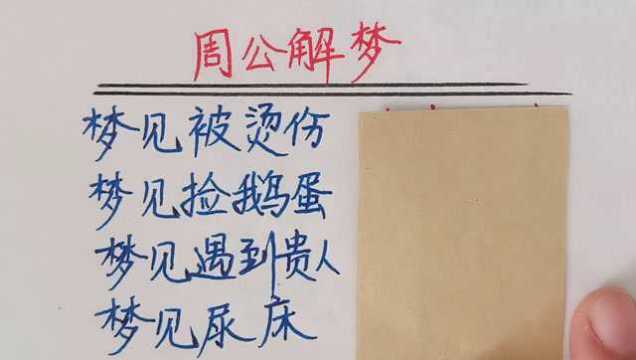 周公解梦
梦见被烫伤
梦见捡鹅蛋
梦见遇到贵人
梦见尿床